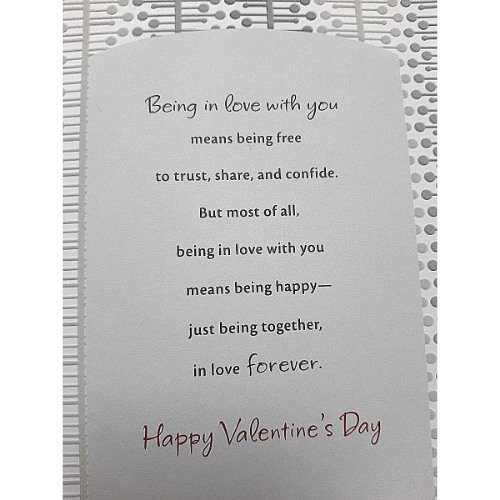 Being in love with you
means being free
to trust, share, and confide.
But most of all,
being in love with you
means being happy—
just being together,
in love forever.
Happy Valentine's Day